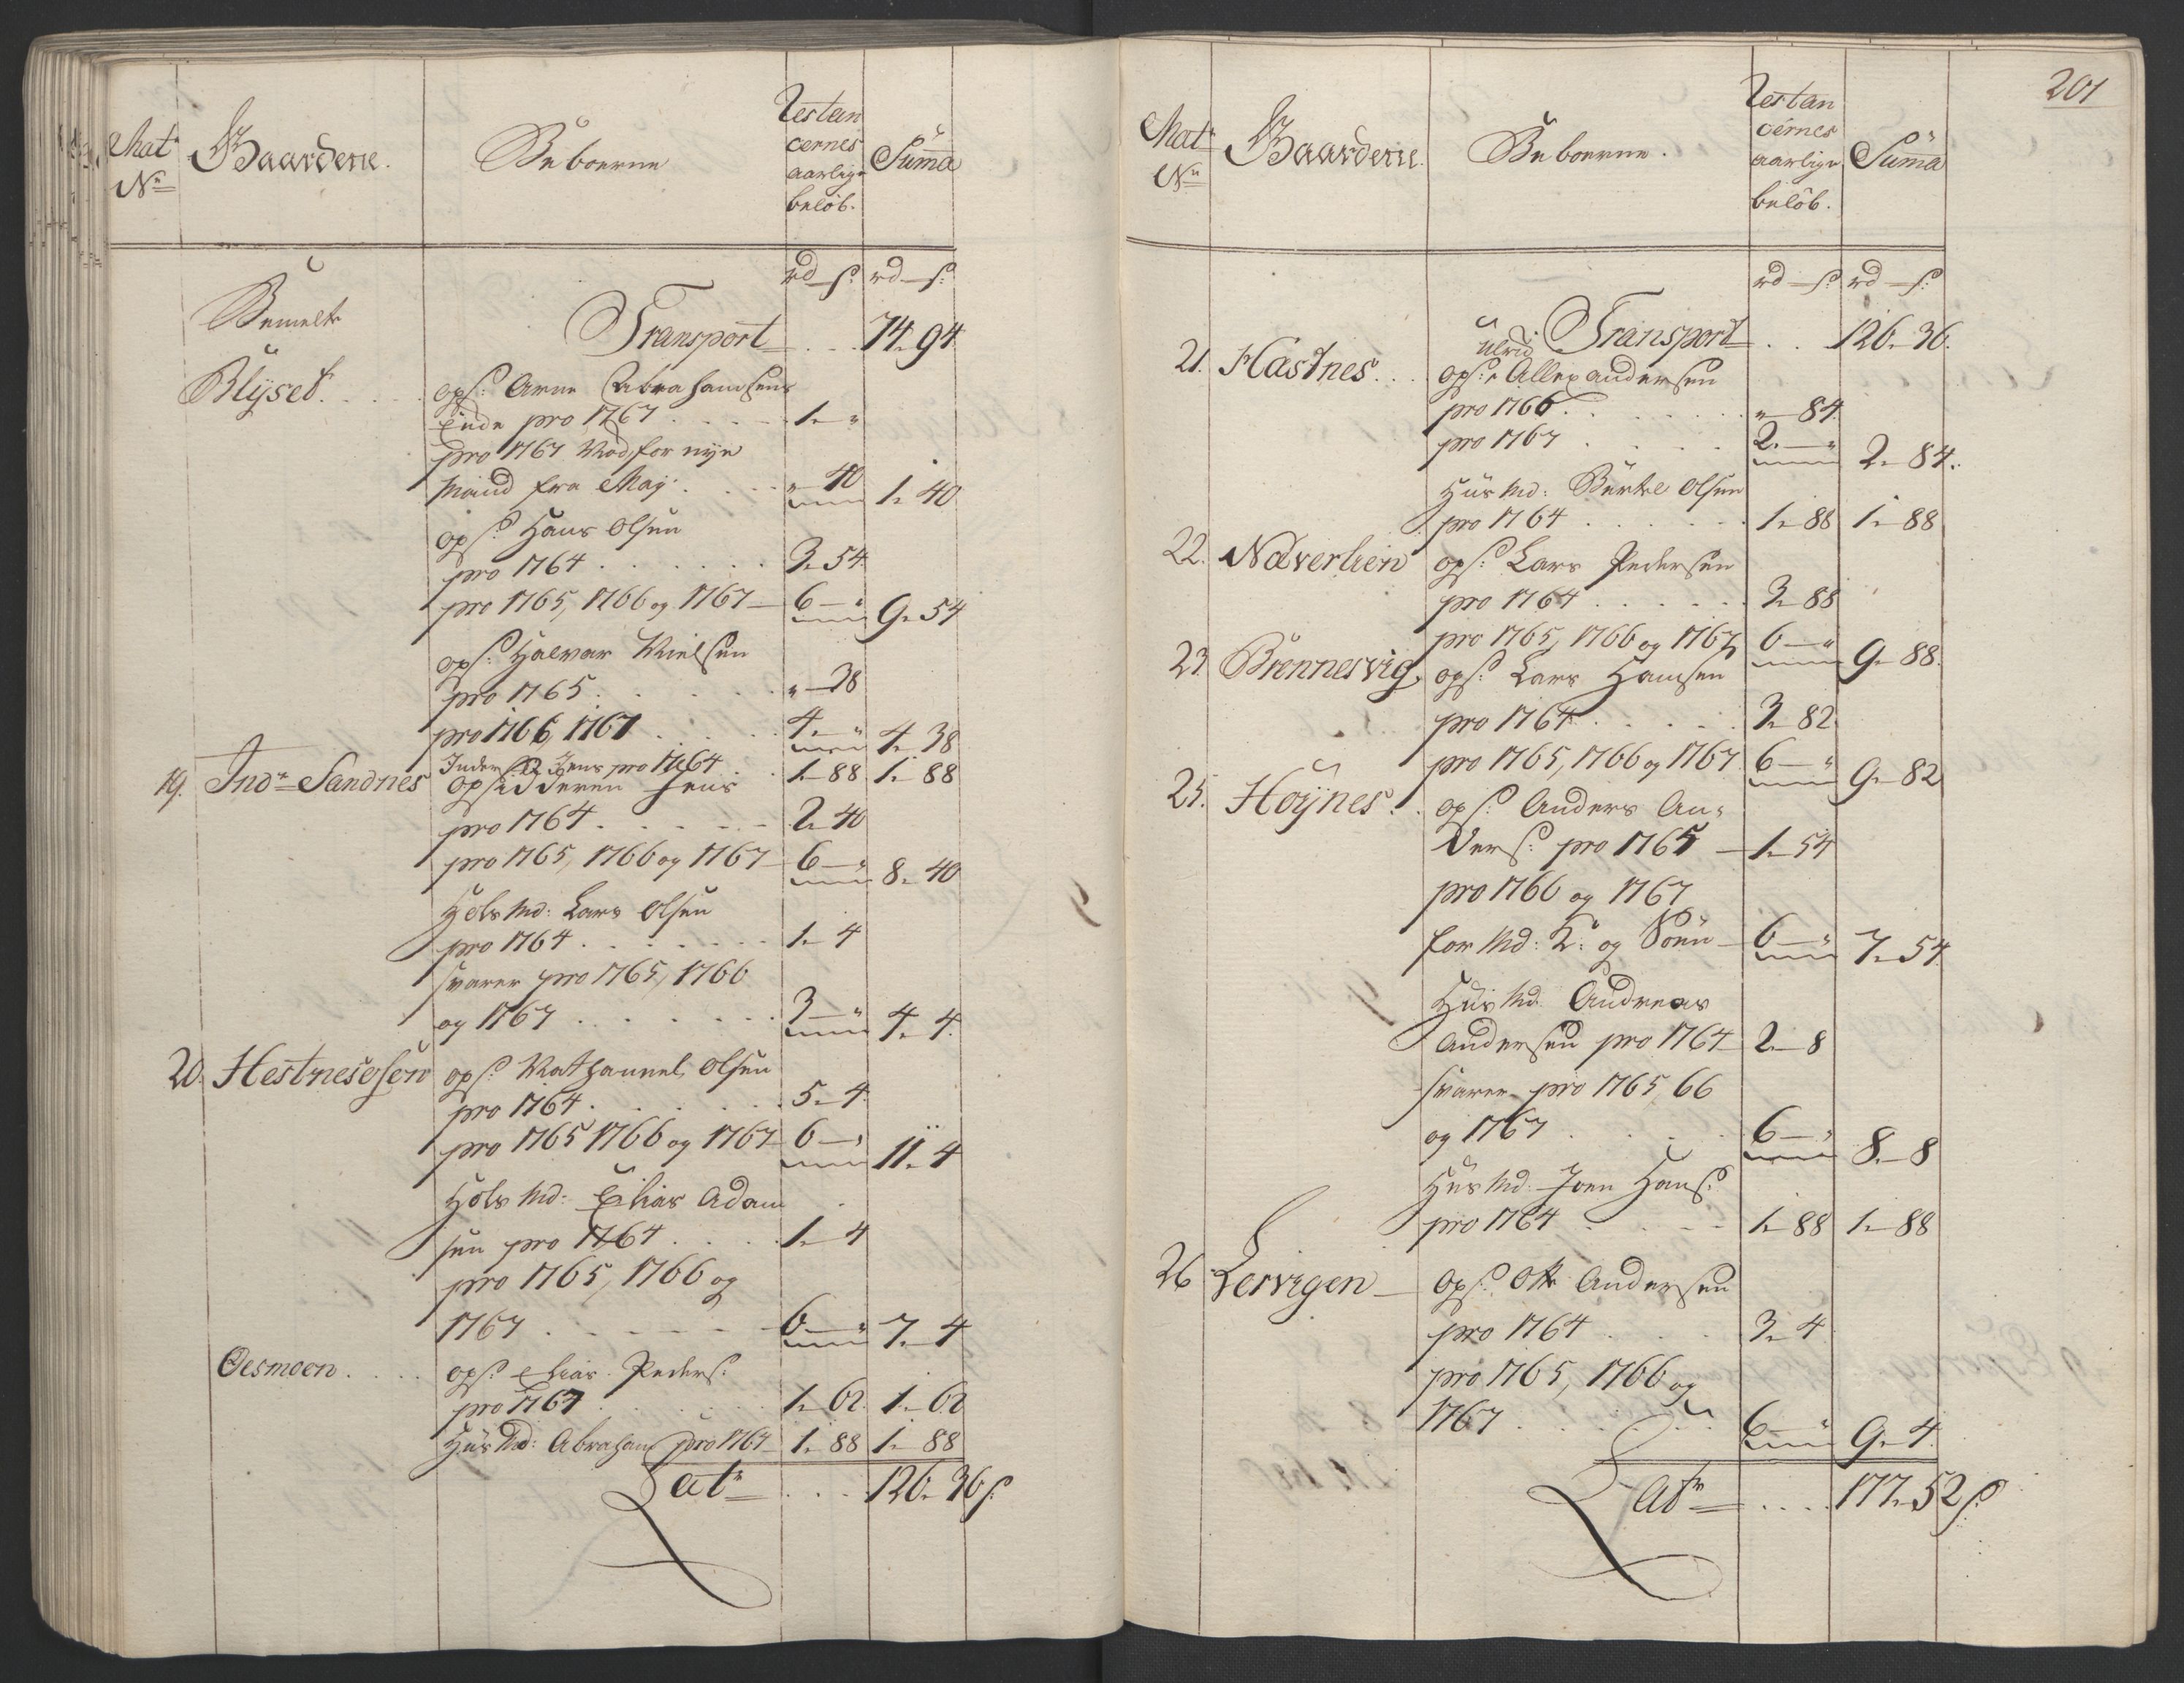 Mat
No
Gaarderne.
Beboerne
Restan
cernes
aarlige
beløb.
Suma
rd—s: rd—s:
Bemelte
Transport . . . 74. 94
Blyset. . . . ops: Arne Abrahamsens
Encke pro 1767 . . . 1. "
pro 1767 Nod, for nye
Mand fra Maj: . . . " 40 1. 40
ops: Hans Olsen
pro 1764 . . . . . . 3. 54
pro 1765, 1766 og 1767 — 6—" 9. 54
ops: Halvar Nielsen
pro 1765 . . . . . . "—38
pro 1766, 1767 . . . . 4. " 4. 38
Jens pro 1764 . . 1. 88 1. 88
19. Indr Sandnes ops: Jens
pro 1764 . . . . . . 2. 40
pro 1765, 1766 og 1767 — 6—" 8. 40
Md: Lars Olsen
pro 1764 . . . . . . 1. 4
svarer pro 1765, 1766
og 1767 . . . . . . 3—" 4. 4.
20. Hestnesøsen ops: Nathanael Olsen
pro 1764 . . . . . . 5. 4
pro 1765 1766 og 1767 6—" 11. 4
Md: Elias Adam
sen pro 1764 . . . . 1. 4
pro 1765, 1766 og
1767 . . . . . . 6—" 7. 4
Oesmoen . . . . ops: Elias Peders:
pro 1767 . . . . . . 1. 62 1. 62
Huus Md: Abraham pro 1764 1. 88 1. 88
Latr . . . 126. 36 s:
201
Mat
No
Gaarderne.
Beboerne.
Restan
cernes
aarlige
beløb.
Suma
rd—s: rd—s:
Transport . . 126. 36.
Ulrid
21. Hastnes . . . ops: Allexandersen
pro 1766 . . . . . "—84.
pro 1767 . . . . . 2.—" 2. 84.
Huus Md: Olsen
pro 1764 . . . . . 1. 88 1. 88
22. Næverlien ops: Lars Pedersen
pro 1764 . . . . . 3. 88
pro 1765, 1766 og 1767 6—" 9. 88.
23. Brønnesvig. ops: Lars Hansen
pro 1764 . . . . . 3. 82
pro 1765, 1766 og 1767 6—" 9. 82
25. Høynes . . ops: Anders An-
ders: pro 1765 — 1. 54
pro 1766 og 1767
for Md: K: og Søn — 6—" 7. 54.
Huus Md. Andreas
Andersen pro 1764 2.—8
svarer pro 1765, 66
og 1767 . . . . 6—" 8.—8
Huus Md. Joen Hans:
pro 1764 . . . . 1. 88 1. 88
26 Lervigen — ops: Ole Andersen
pro 1764 . . . . 3. 4
pro 1765, 1766 og
1767 . . . . . 6—" 9. 4.
Latr . . . . 177. 52 s: